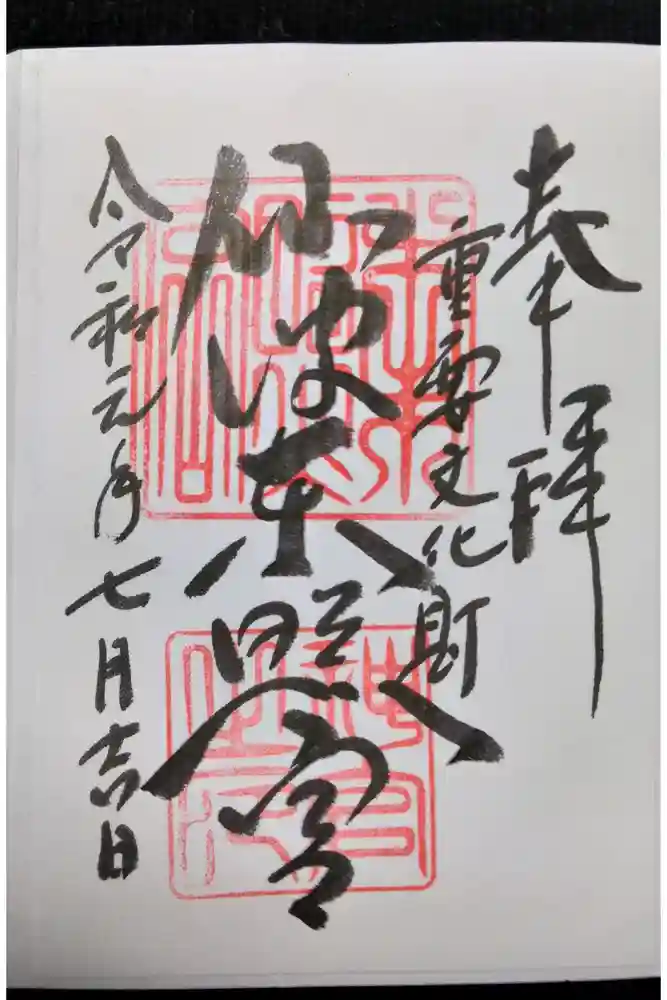 奉拝
重要文化財
仙波東照宮
令和元年七月吉日